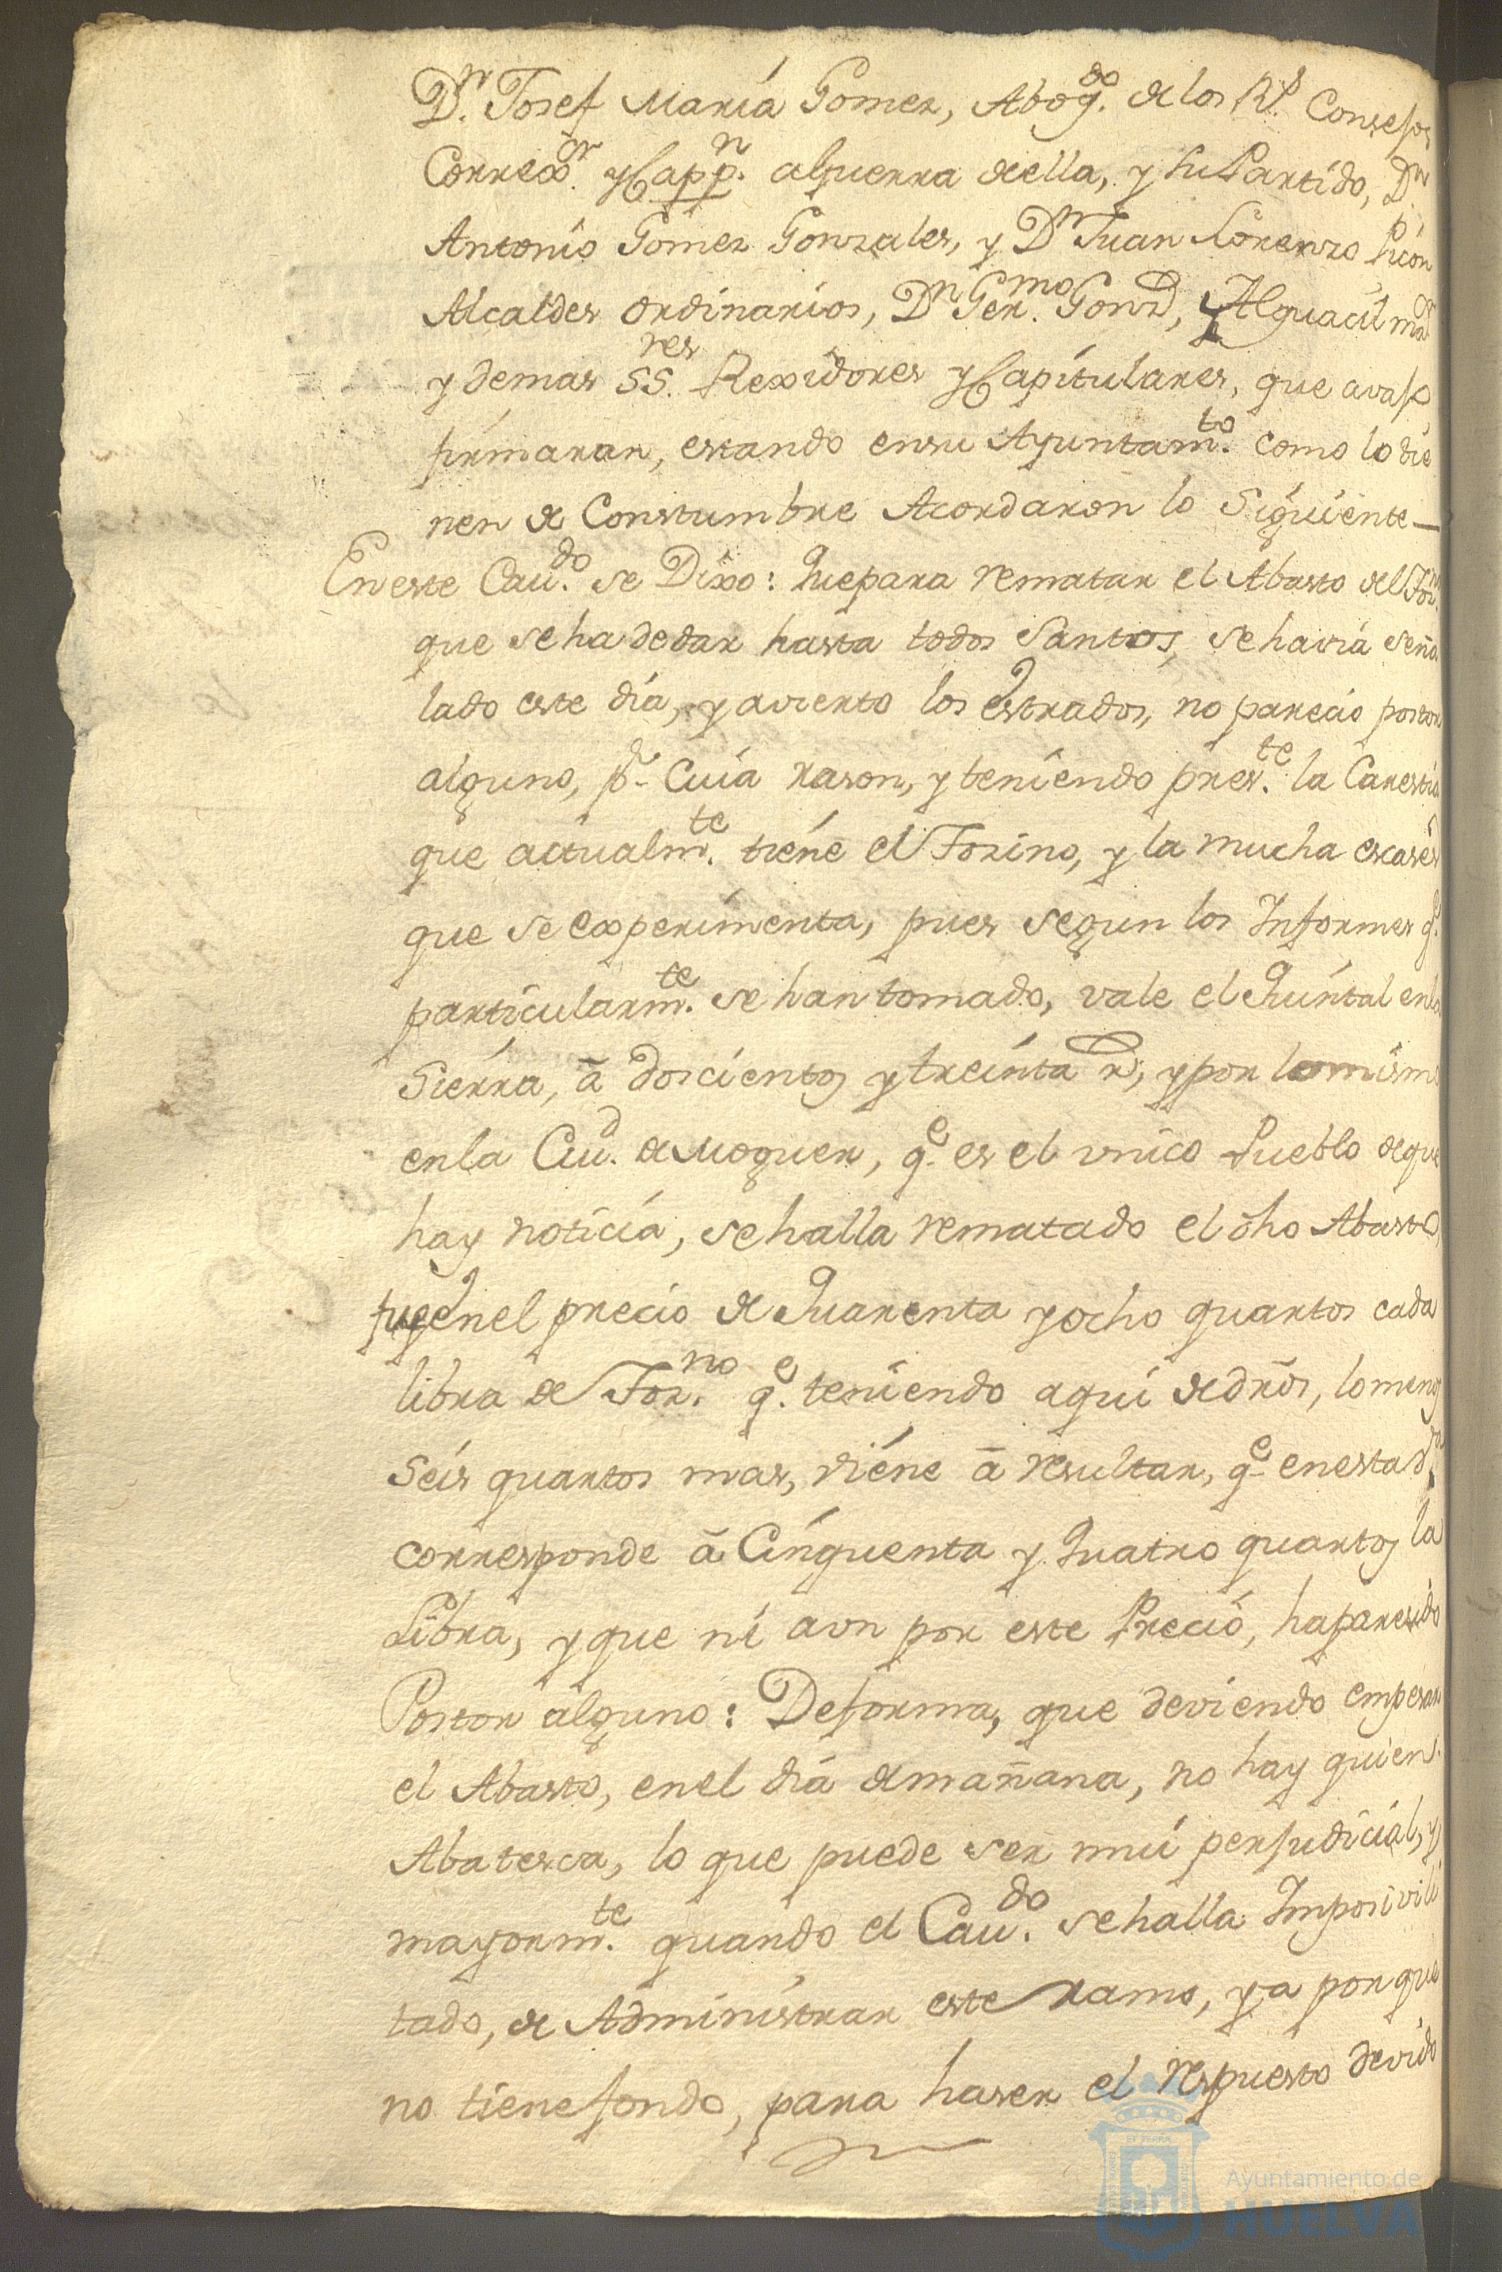 Dn. Josef María Gomez, Abogdo. de los Rs. Consejos
Correxor. y Cappn. aguerra de ella, y su Partido, Dn
Antonio Gomez Gonzales, y Dn Juan Lorenzo Picon
Alcaldes ordinarios, Dn Germo. Gonz, Alguacil mor
y demas SSres. Rexidores y Capitulares, que avaxo
firmaran, estando en su Ayuntamto. como lo tie
nen de Constumbre Acordaron lo Siguiente—
En este Cavdo. se Dixo: Que para rematar el Abasto del Tozno.
que se ha de dar hasta todos Santos, se havia seña
lado este día, y avierto los estrados, no parecio postor
alguno, pr. Cuia rason, y teniendo preste. la Carestia
que actualmte. tiéne el Tozino, y la mucha escasés
que se experimenta, pues segun los Informes qe.
particularmte. se han tomado, vale el Quintal en la
Sierra, â doscientos y treinta rs, y por lo mismo
en la Ciud. de Moguer, qe. es el vnico Pueblo de que
hay noticia, se halla rematado el dho Abasto,
fue en el precio de Quarenta y ocho quartos cada
libra de Tozno. qe. teniendo aqui de dros, lo menos
Seis quartos mas, viéne â resultar, qe. en esta Va.
corresponde â Cinquenta y Quatro quartos la
Libra, y que ni aun por este Precio, ha parecido
Postor alguno: De forma, que deviendo empesar
el Abasto, en el dia de mañana, no hay quien
Abatesca, lo que puede ser mui perjudicial, y
mayormte. quando el Cavdo. se halla Imposivili
tado, de Administrar este ramo, ya por que
no tiene fondo, para haser el respuesto devido
Ayuntamiento de
HUELVA